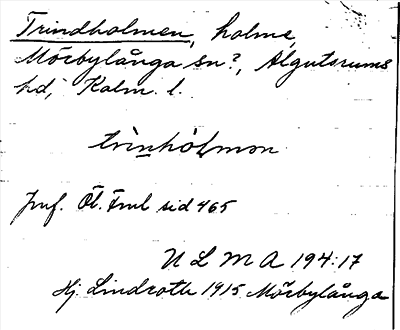 Trindholmen, holme,
Mörbylånga sn?, Algutsrums
hd, Kalm. l.
trìnhòlmən
Jmf. Öl. Fnul sid 465
U L M A 194:17
Hj. Lindroth 1915 Mörbylånga